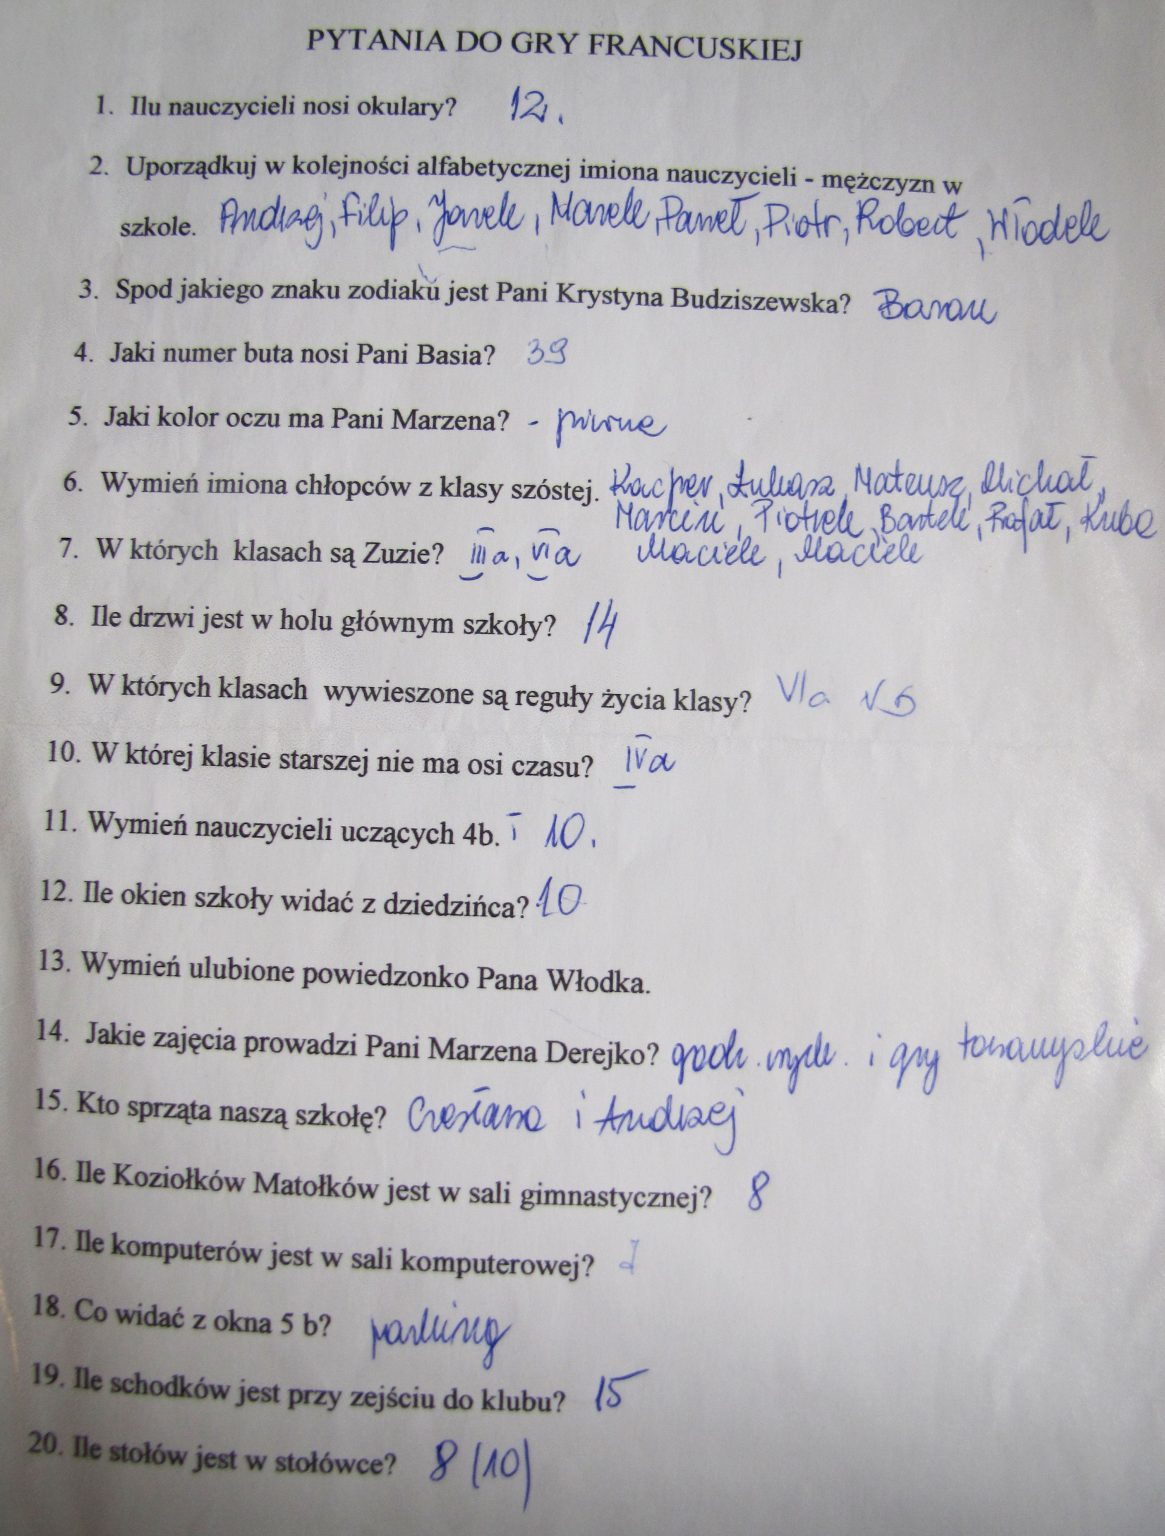 PYTANIA DO GRY FRANCUSKIEJ
1. Ilu nauczycieli nosi okulary? 12.
2. Uporządkuj w kolejności alfabetycznej imiona nauczycieli - mężczyzn w
szkole. Andrzej, Filip, Jarek, Marek, Paweł, Piotr, Robert, Włodek
3. Spod jakiego znaku zodiaku jest Pani Krystyna Budziszewska? Baran
4. Jaki numer buta nosi Pani Basia? 39
5. Jaki kolor oczu ma Pani Marzena? - piwne
6. Wymień imiona chłopców z klasy szóstej. Kacper, Łukasz, Mateusz, Michał,
Marcin, Piotrek, Bartek, Rafał, Kuba
7. W których klasach są Zuzie? IIIa, VIa Maciek, Maciek
8. Ile drzwi jest w holu głównym szkoły? 14
9. W których klasach wywieszone są reguły życia klasy? VIa V b
10. W której klasie starszej nie ma osi czasu? IVa
11. Wymień nauczycieli uczących 4b. i 10.
12. Ile okien szkoły widać z dziedzińca? 10
13. Wymień ulubione powiedzonko Pana Włodka.
14. Jakie zajęcia prowadzi Pani Marzena Derejko? godz. wych. i gry towarzyskie
15. Kto sprząta naszą szkołę? Czesława i Andrzej
16. Ile Koziołków Matołków jest w sali gimnastycznej? 8
17. Ile komputerów jest w sali komputerowej?
18. Co widać z okna 5 b? parking
19. Ile schodków jest przy zejściu do klubu? 15
20. Ile stołów jest w stołówce? 8 (10)